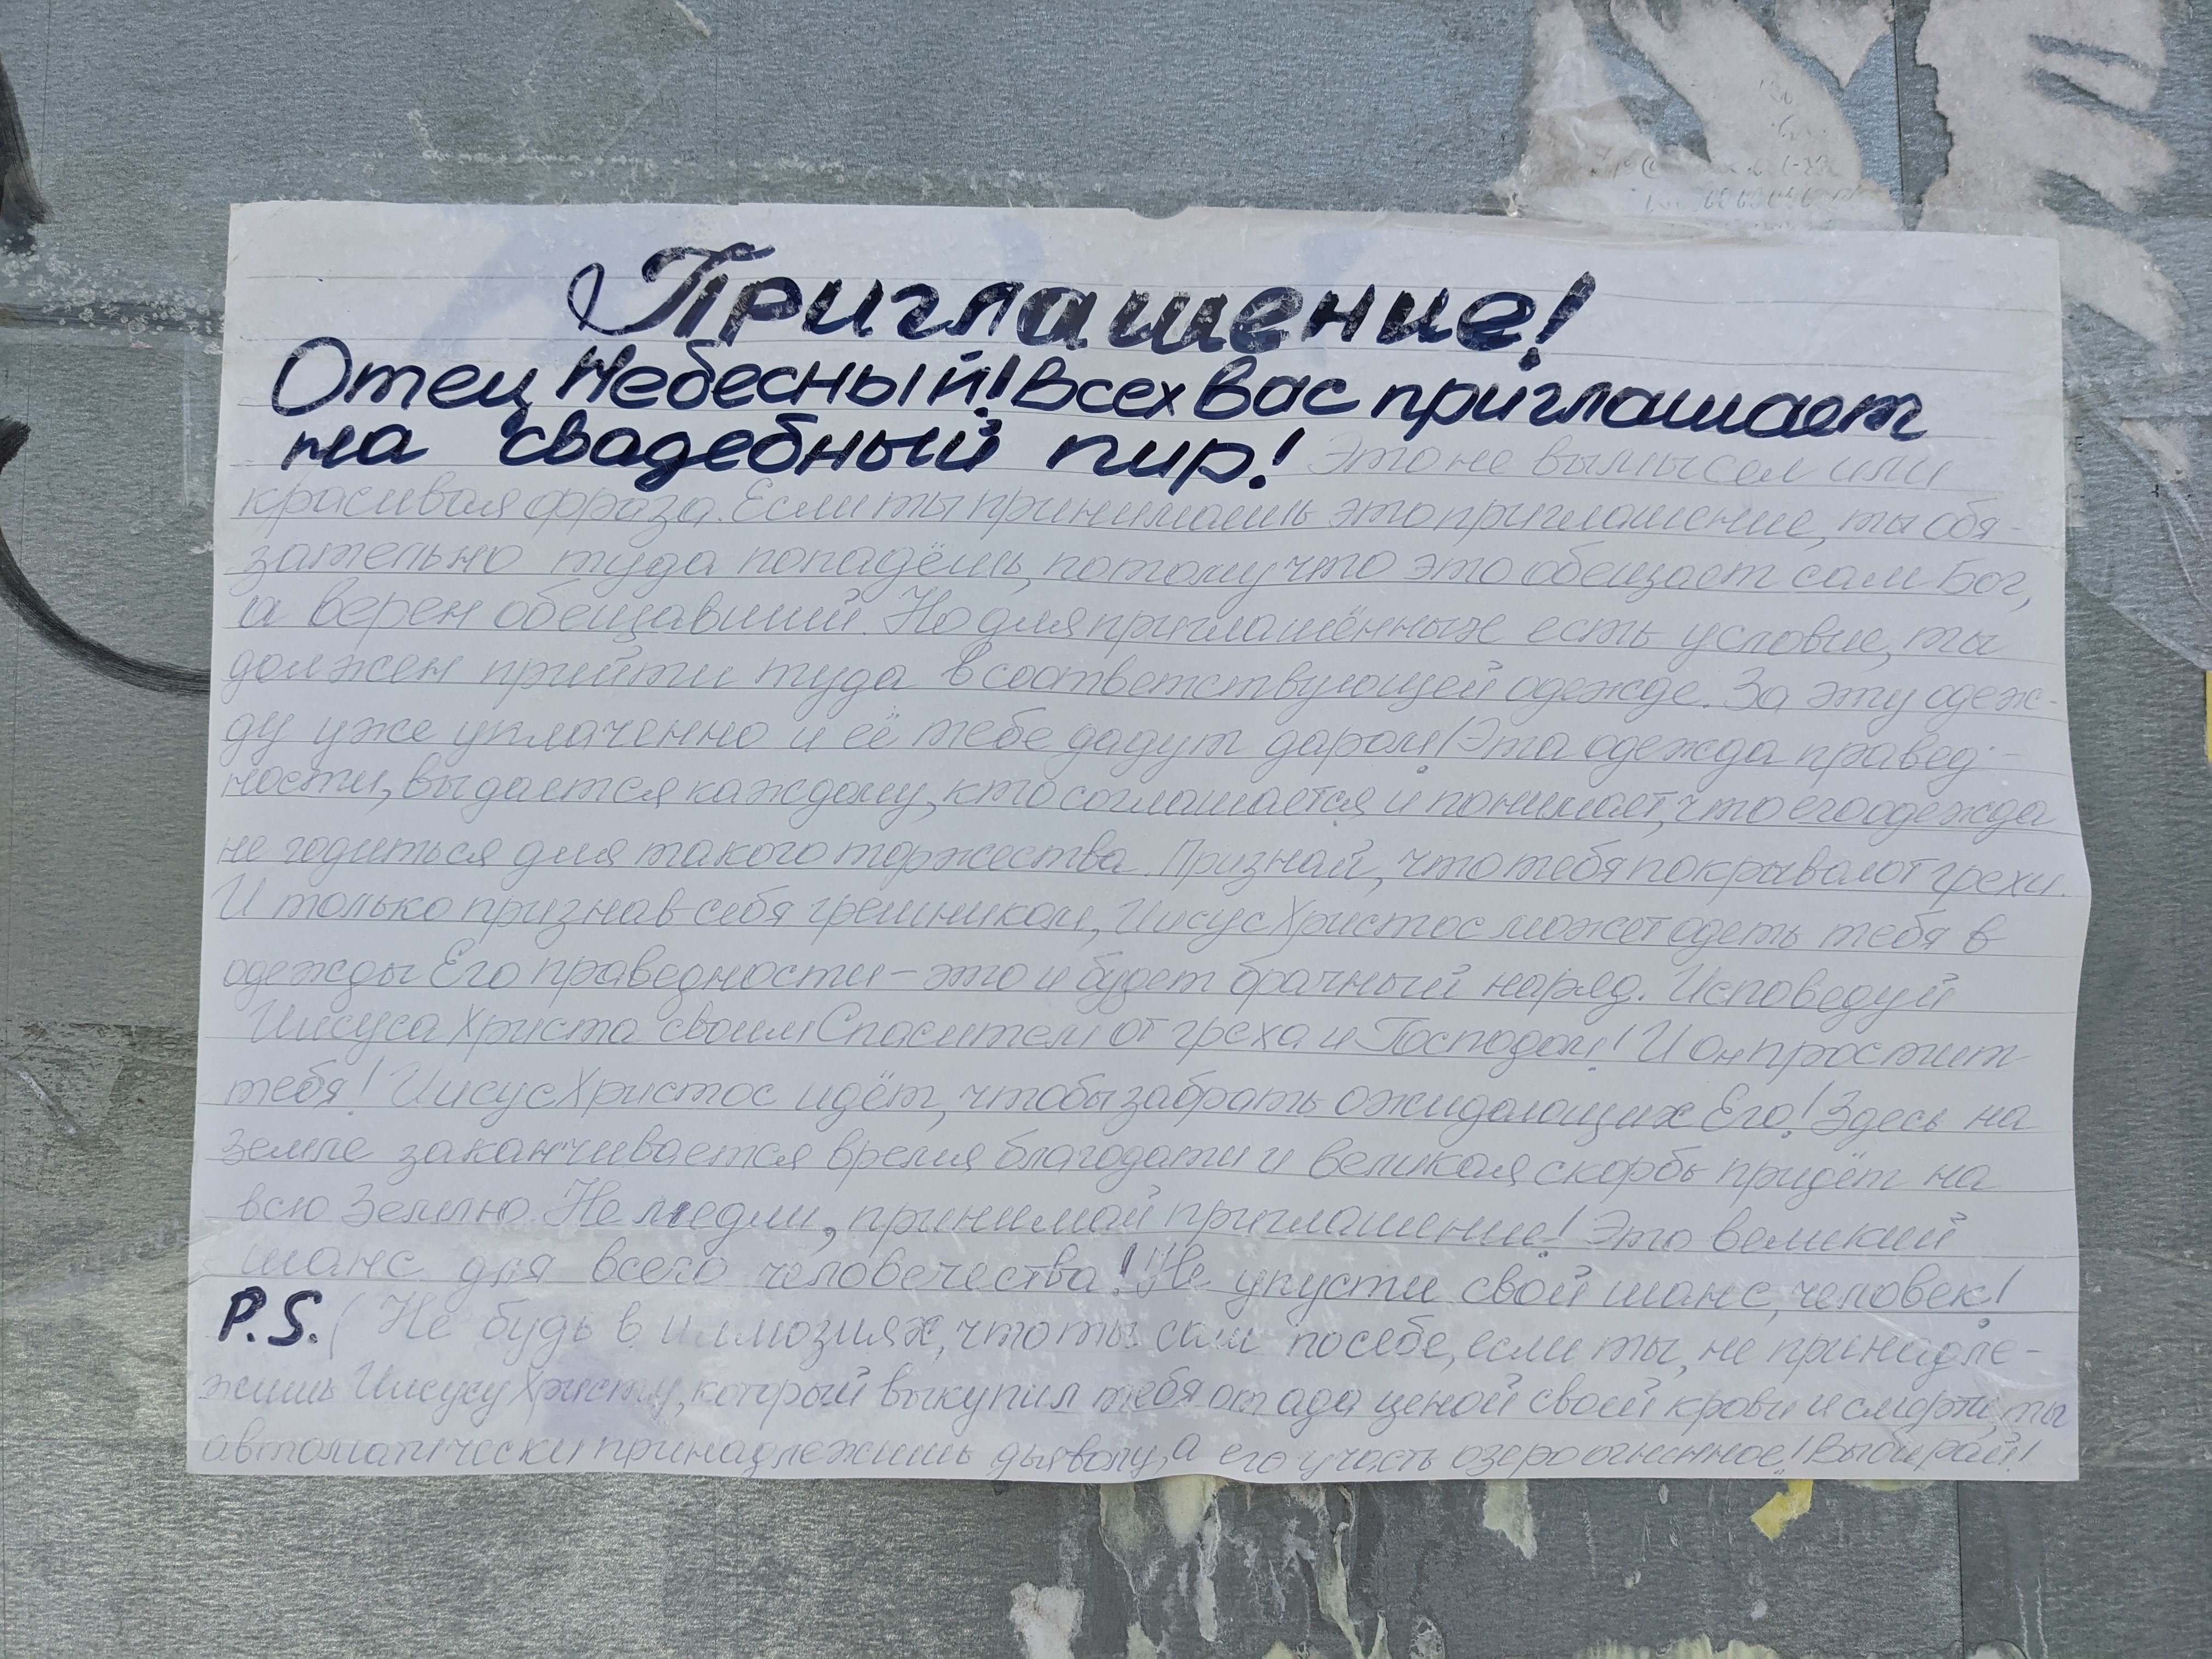 Приглашение!
Отец Небесный! Всех вас приглашает
на свадебный пир! Это не вымысел или
красивая фраза. Если ты принимаешь это приглашение, ты обя-
зательно туда попадёшь, потому что это обещает сам Бог,
а верен обещавший. Но для приглашённых есть условие, ты
должен прийти туда в соответствующей одежде. За эту одеж-
ду уже уплаченно и её тебе дадут даром! Эта одежда правед-
ности, выдается каждому, кто соглашается и понимает, что его одежда
не годиться для такого торжества. Признай, что тебя покрывают грехи.
И только признав себя грешником, Иисус Христос может одеть тебя в
одежды Его праведности - это и будет брачный наряд. Исповедуй
Иисуса Христа своим Спасителем от греха и Господом! И он простит
тебя! Иисус Христос идёт, чтобы забрать ожидающих Его! Здесь на
земле заканчивается время благодати и великая скорбь придёт на
всю Землю. Не медли, принимай приглашение! Это великий
шанс для всего человечества! Не упусти свой шанс, человек!
P.S. (Не будь в иллюзиях, что ты сам по себе, если ты, не принадле-
жишь Иисусу Христу, который выкупил тебя от ада ценой своей крови и смерти, ты
автоматически принадлежишь дьяволу, а его участь озеро огненное! Выбирай!